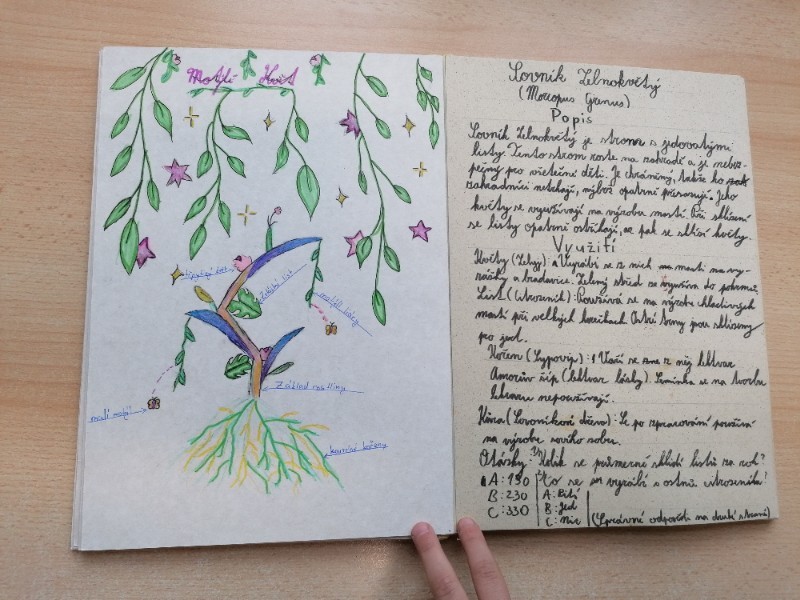 Motýlí Květ
základ rostliny
kouzelné kořeny
malí motýli
Lovník Zelnokvětý
(Morcopus Granus)
Popis
Lovník Zelnokvětý je strom s jedovatými
listy. Tento strom roste na zahradě a je nebez-
pejný pro všetečné děti. Je chráněný, takže ho
zahradníci netrhají, nýbrž opatrně přesazují. Jeho
květy se využívají na výrobu mastí. Při sklízení
se listy opatrně ostříhají, az pak se sklísí květy.
Využití
Květy (Zelyj): Vyrábí se z nich mast na vy-
rážky a bradavice. Zelený střed se využívá do pokrmů.
List (Citrozník): Používá se na výrobu chladivých
mastí při velkých horečkách Ostré trny jsou sklízeny
pro jed.
Kořen (Lypovip): Vaří se z něj lektvar
Amorův šíp (lektvar lásky). Semínka se na tvorbu
lektvaru nepoužívají.
Kůra (Lovoníkové dřevo): Se po zpracování používá
na výrobu nového nábu.
Otázky: Kolik se průměrně sklidí listů za rok?
A: 130
B: 230
C: 330
Co se vyrábí z ostnů citrozníka?
A: Pití
B: Jed
C: Nic
(Správné odpovědi na druhé straně)